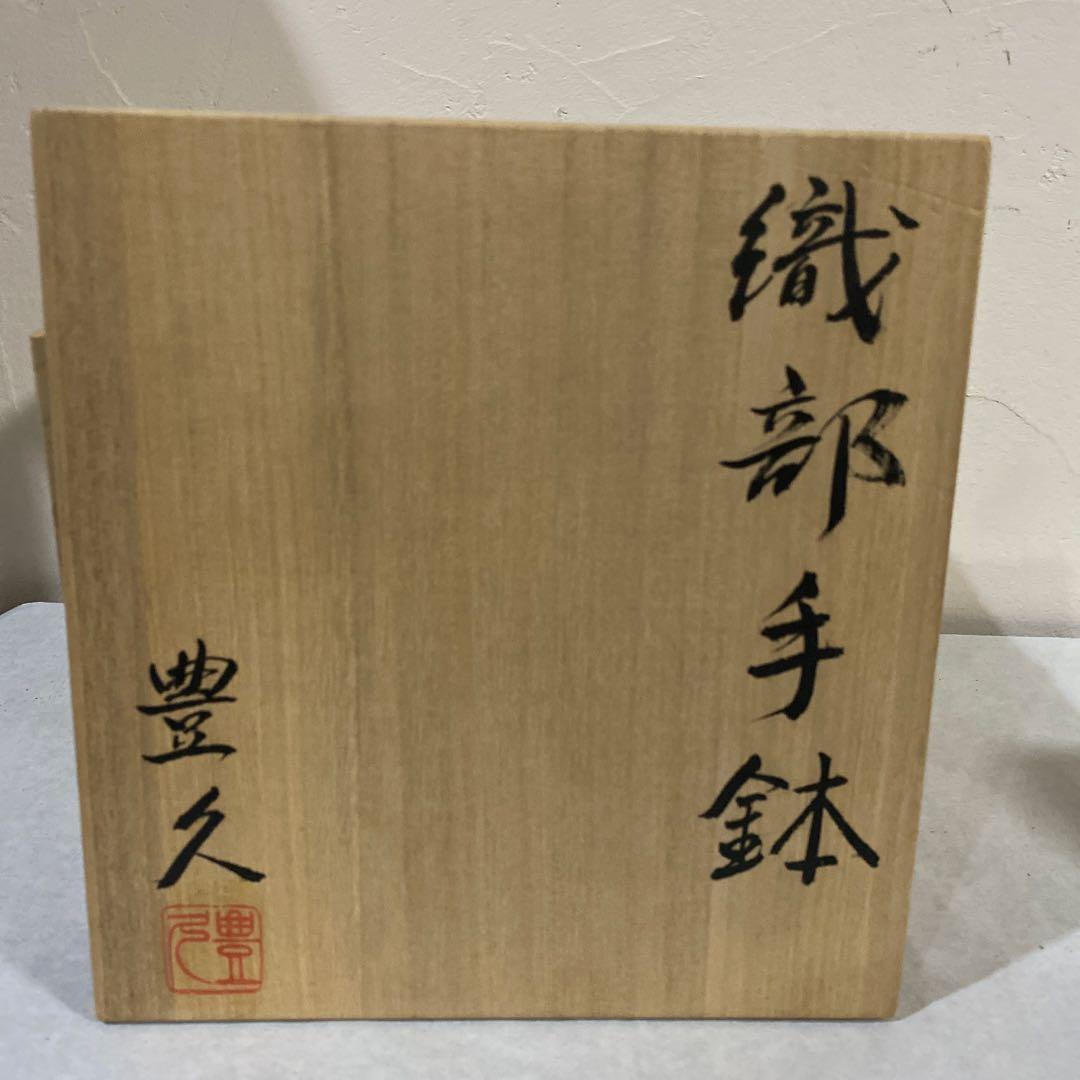 織部手鉢
豊久
豊久